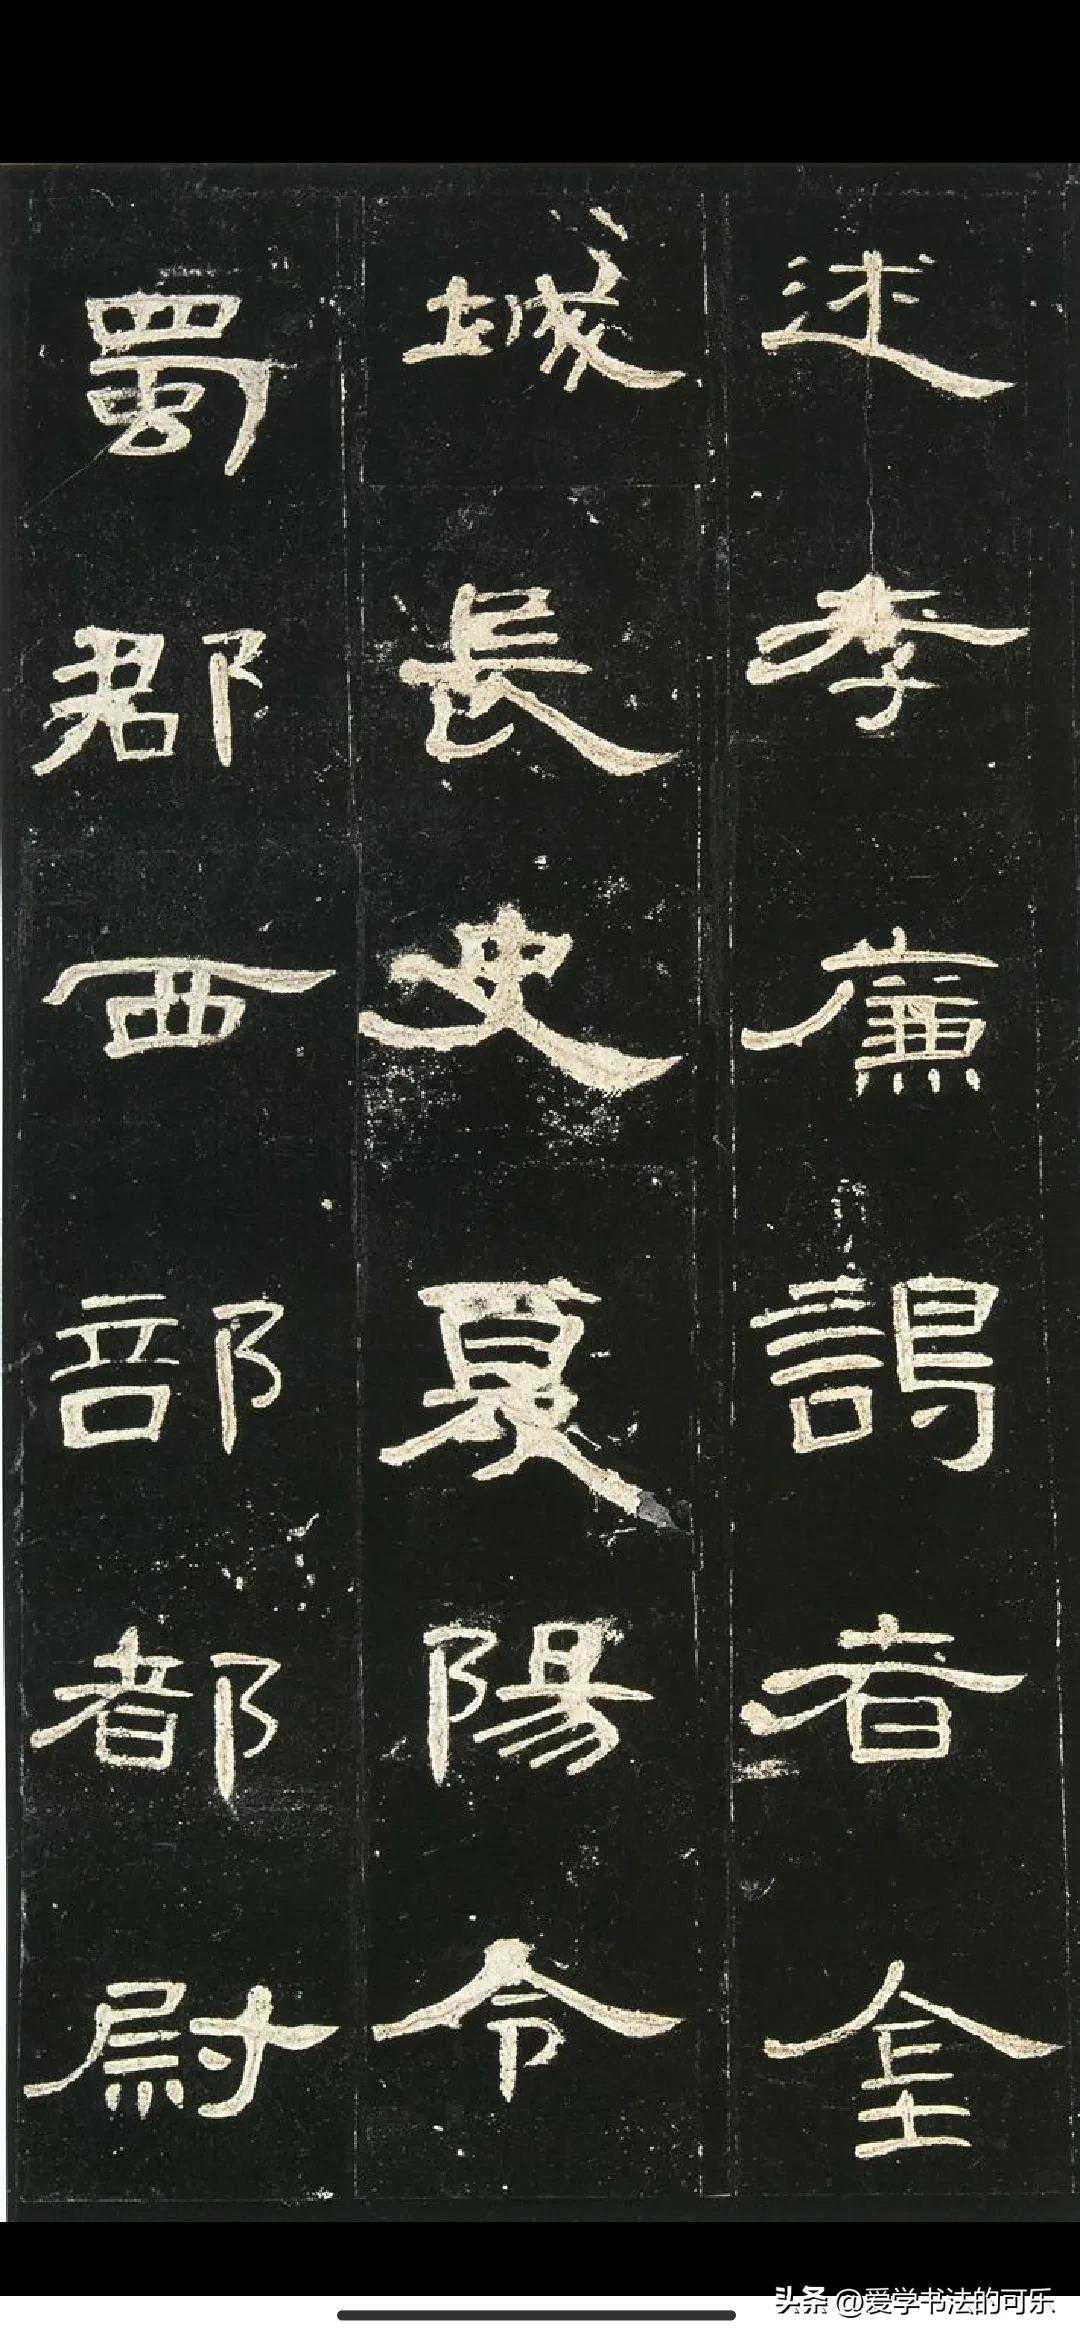 述孝廉謁者金
城長史夏陽令
蜀郡西部都尉
头条 @爱学书法的可乐